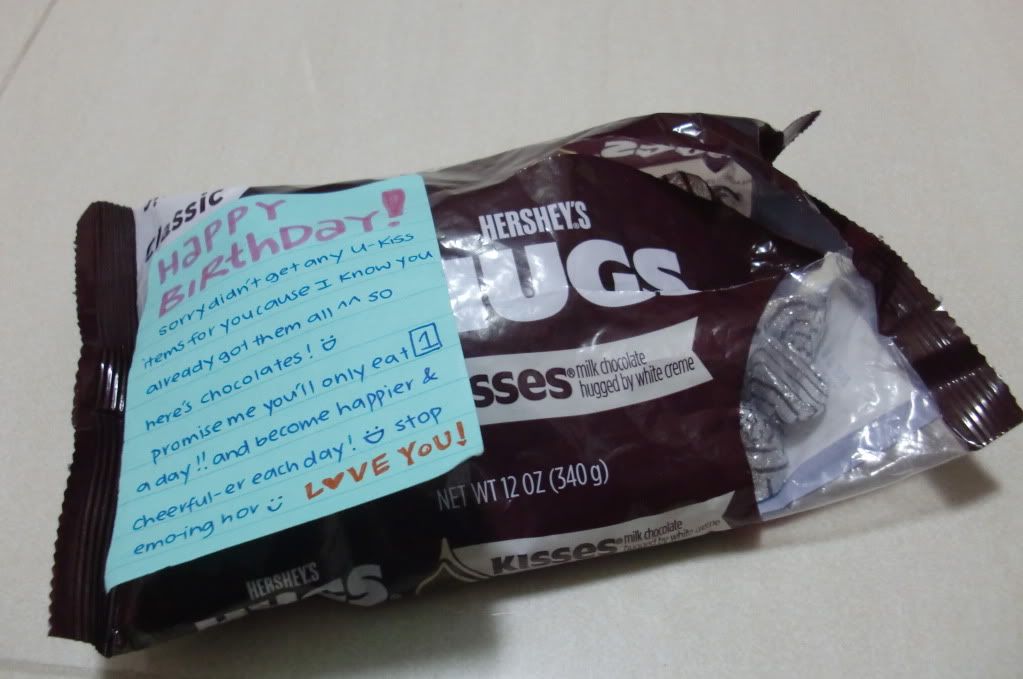 classic
HAPPY
BIRthDAY!
sorry didn't get any U-Kiss
items for you cause I know you
already got them all ^^ so
here's chocolates!
promise me you'll only eat 1
a day!! and become happier &
cheerful-er each day! stop
emo-ing hor LOVE YOU!
HERSHEY'S
HUGS
KISSES® milk chocolate
hugged by white creme
NET WT 12 OZ (340 g)
KISSES® milk chocolate
hugged by white creme
HERSHEY'S
HUGS